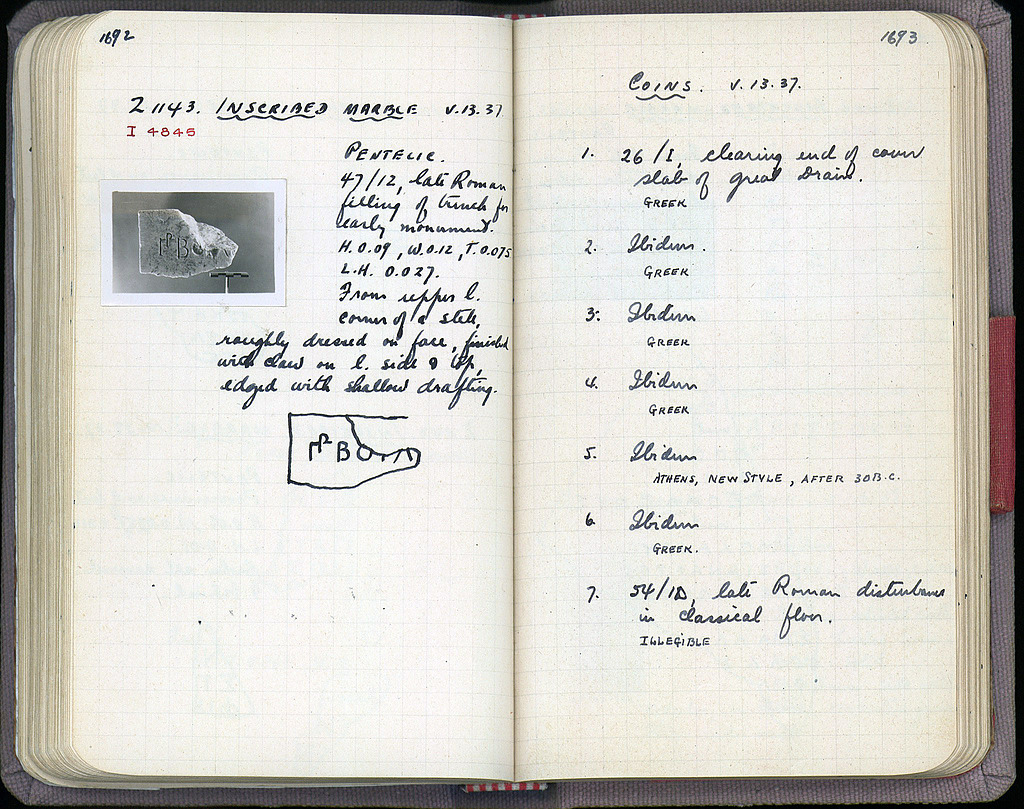 1692
Σ 1143. INSCRIBED MARBLE V.13.37
I 4845
PENTELIC.
47/12, late Roman
filling of trench for
early monument.
H. 0.09, W. 0.12, T. 0.075
L.H. 0.027.
From upper l.
corner of a stele,
roughly dressed on face, finished
with claw on l. side & top,
edged with shallow drafting.
1693
COINS. V.13.37.
1. 26/I, clearing end of cover
slab of great Drain.
GREEK
2. Ibidum.
GREEK
3. Ibidum
GREEK
4. Ibidum
GREEK
5. Ibidum
ATHENS, NEW STYLE, AFTER 30 B.C.
6 Ibidum
GREEK.
7. 54/ΙΔ, late Roman disturbance
in classical floor.
ILLEGIBLE